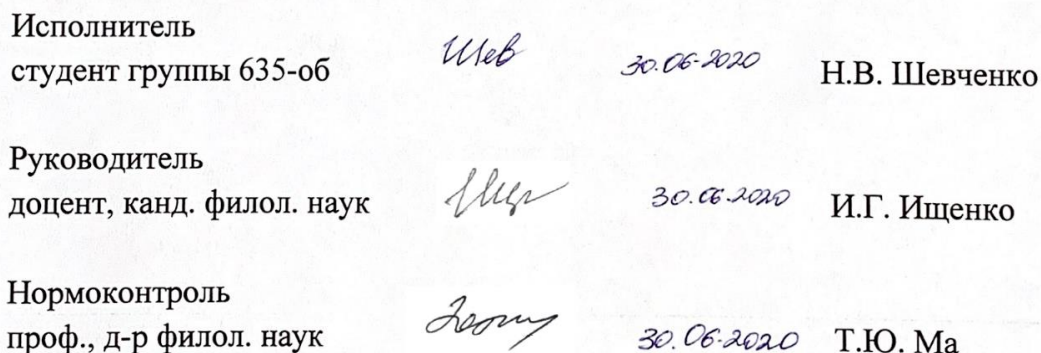 Исполнитель
студент группы 635-об Шев 30.06.2020 Н.В. Шевченко
Руководитель
доцент, канд. филол. наук 30.06.2020 И.Г. Ищенко
Нормоконтроль
проф., д-р филол. наук 30.06.2020 Т.Ю. Ма